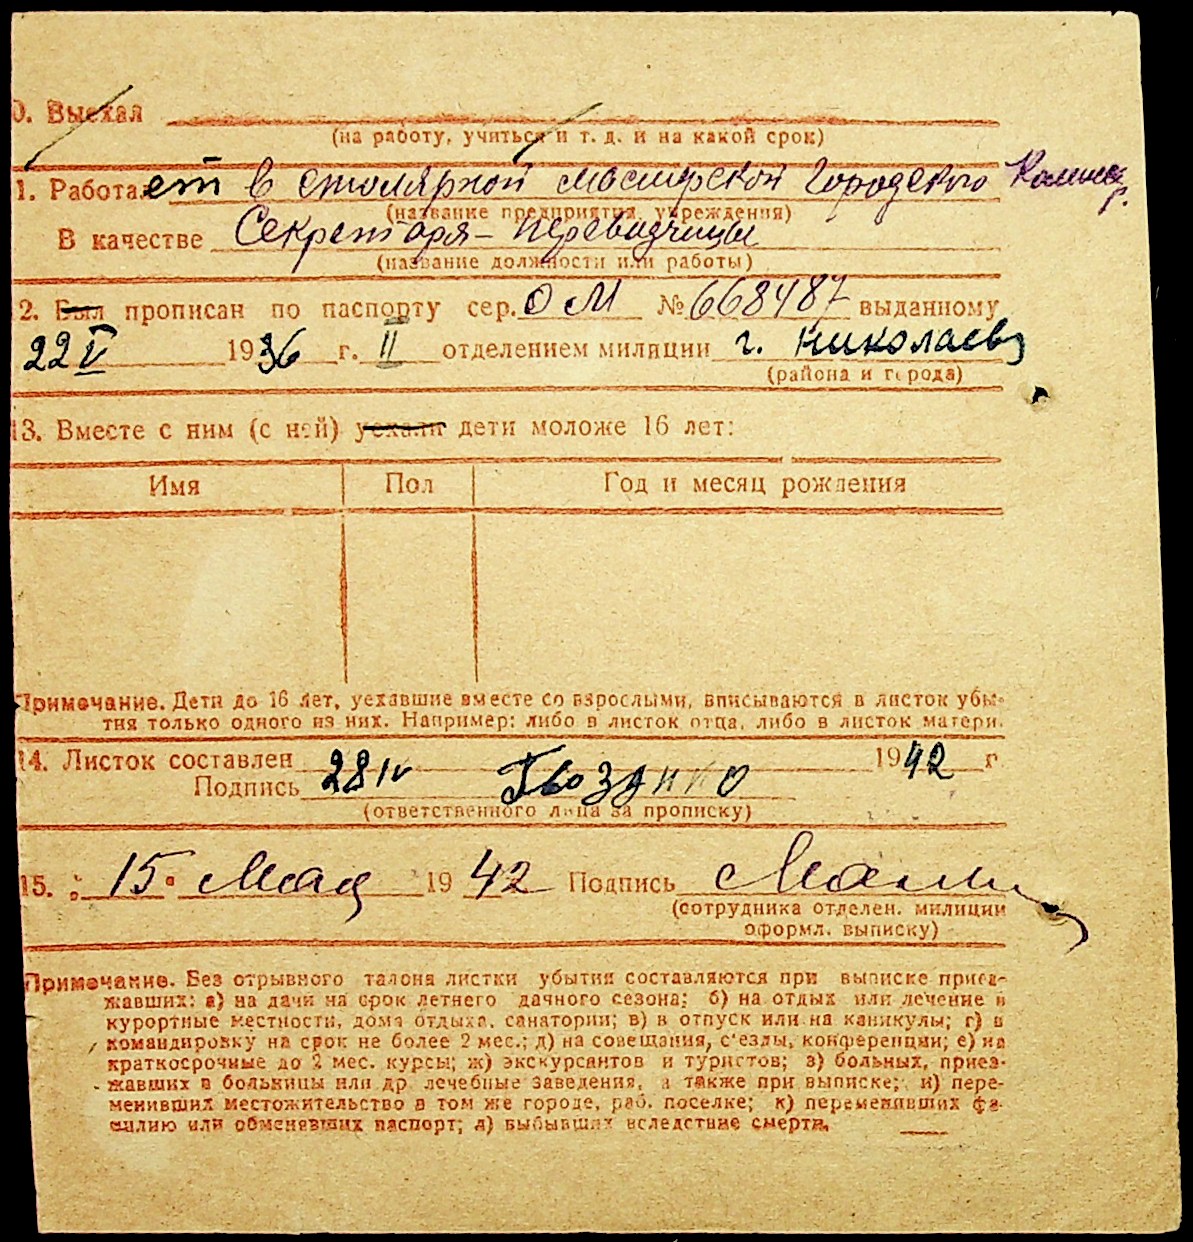 0. Выехал
(на работу, учиться и т. д. и на какой срок)
1. Работает в столярной мастерской Городского
(название предприятия, учреждения)
В качестве Секретаря-переводчицы
(название должности или работы)
2. Был прописан по паспорту сер. ОМ № 668487 выданному
22 V 1936 г. II отделением милиции г. Николаев
(района и города)
13. Вместе с ним (с ней) уехали дети моложе 16 лет:
Имя Пол Год и месяц рождения
Примечание. Дети до 16 лет, уехавшие вместе со взрослыми, вписываются в листок убы-
тия только одного из них. Например: либо в листок отца, либо в листок матери.
14. Листок составлен 28 IV 1942 г
Подпись Гвозденко
(ответственного лица за прописку)
15. 15 Мая 1942 Подпись
(сотрудника отделен. милиции
оформл. выписку)
Примечание. Без отрывного талона листки убытия составляются при выписке приез-
жавших: а) на дачи на срок летнего дачного сезона; б) на отдых или лечение в
курортные местности, дома отдыха, санатории; в) в отпуск или на каникулы; г) в
командировку на срок не более 2 мес.; д) на совещания, с'езды, конференции; е) на
краткосрочные до 2 мес. курсы; ж) экскурсантов и туристов; з) больных, приез-
жавших в больницы или др лечебные заведения, а также при выписке; и) пере-
менивших местожительство в том же городе, раб. поселке; к) переменивших фа-
милию или обменявших паспорт; л) выбывших вследствие смерти.